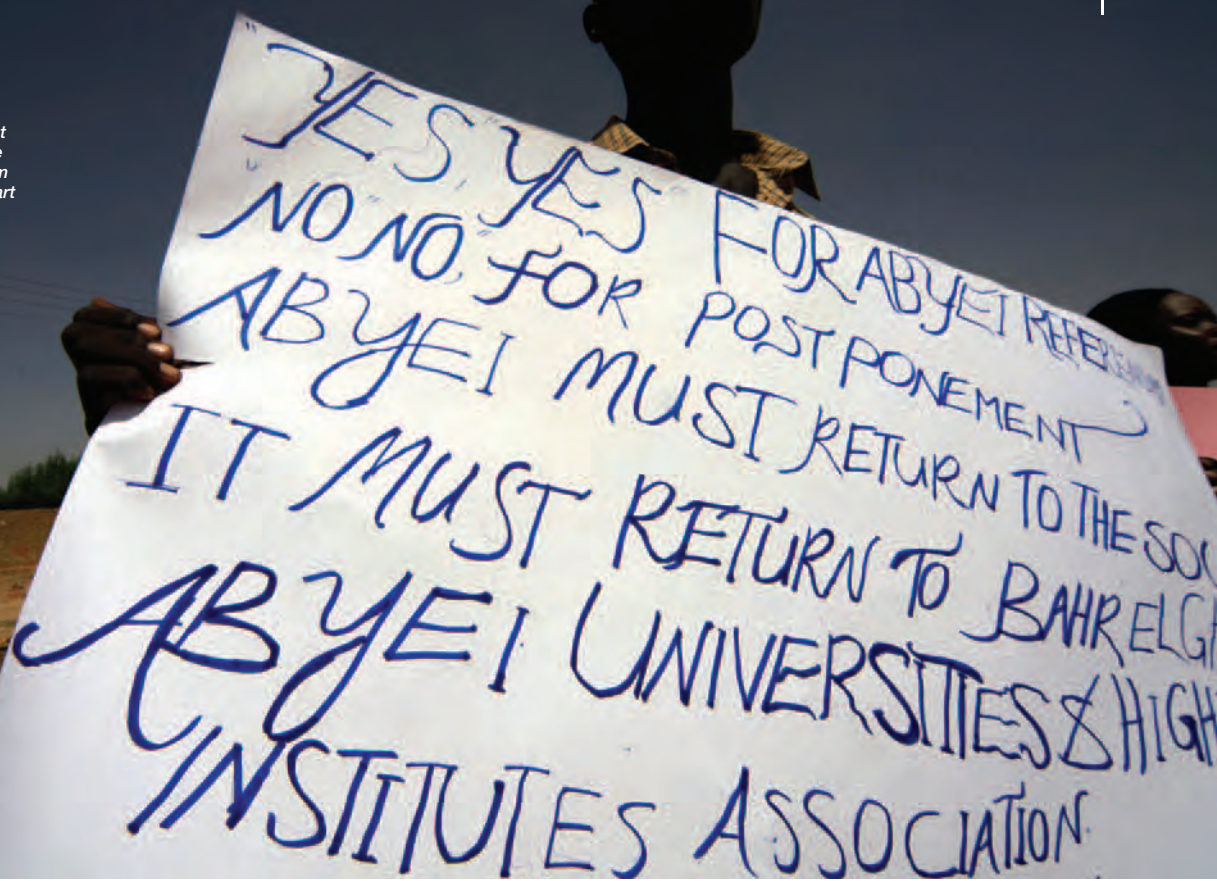 t
e
n
art
"YES," YES" FOR ABYEI REFERENDUM
"NO" NO," FOR POSTPONEMENT
ABYEI MUST RETURN TO THE SOU
IT MUST RETURN TO BAHR ELGH
ABYEI UNIVERSITIES & HIGH
INSTITUTES ASSOCIATION